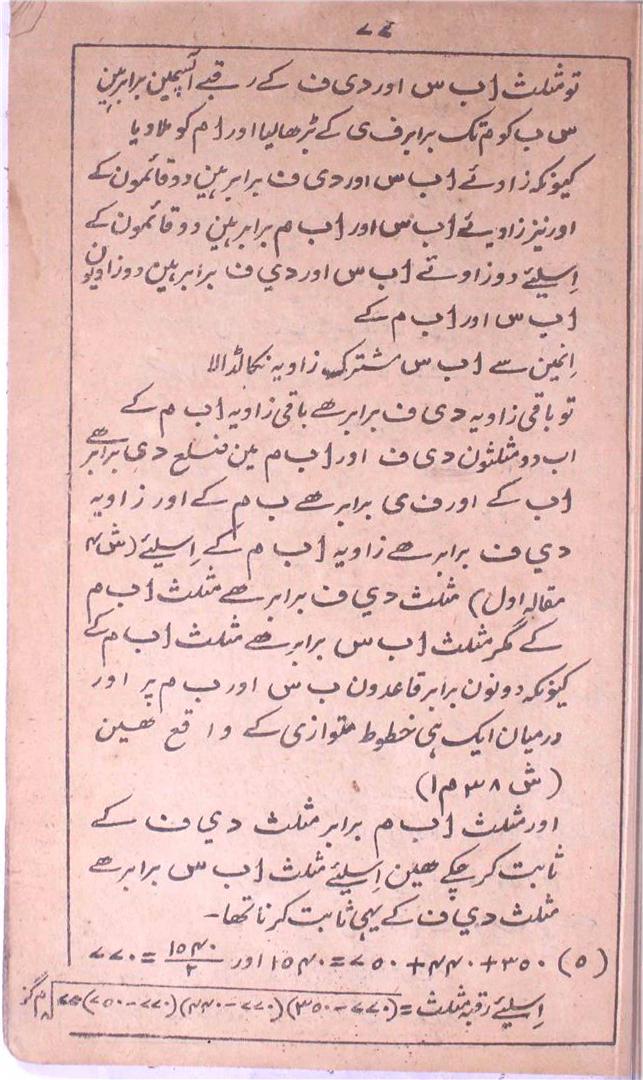 ۷۴
تو مثلث اب س اور دی ف کے رقبے آپسمین برابر ہین
س ب کو م تک برابر ف ی کے بڑھالیا اور ا م کو ملا دیا
کیونکہ زاوئے اب س اور دی ف برابر ہین دو قائمون کے
اور نیز زاویئے اب س اور اب م برابر ہین دو قائمون کے
اِسلیئے دو زاوئے اب س اور دی ف برابر ہین دو زاویون
اب س اور اب م کے
اِنمین سے اب س مشترک زاویہ نکالڈالا
تو باقی زاویہ دی ف برابر ہے باقی زاویہ اب م کے
اب دو مثلثون دی ف اور اب م مین ضلع دی برابر ہے
اب کے اور ف ی برابر ہے ب م کے اور زاویہ
دی ف برابر ہے زاویہ اب م کے اِسلیئے (ش ۴
مقالہ اول) مثلث دی ف برابر ہے مثلث اب م
کے مگر مثلث اب س برابر ہے مثلث اب م کے
کیونکہ دونون برابر قاعدون ب س اور ب م پر اور
درمیان ایک ہی خطوط متوازی کے واقع ہین
(ش ۳۸ م ۱)
اور مثلث اب م برابر مثلث دی ف کے
ثابت کر چکے ہین اِسلیئے مثلث اب س برابر ہے
مثلث دی ف کے یہی ثابت کرنا تھا۔
(۵) ۳۵۰ + ۴۴۰ + ۷۵۰ = ۱۵۴۰ اور ۱۵۴۰/۲ = ۷۷۰
اِسلیئے رقبہ مثلث = √۷۷۰(۷۷۰−۷۵۰)(۷۷۰−۴۴۰)(۷۷۰−۳۵۰) م گز